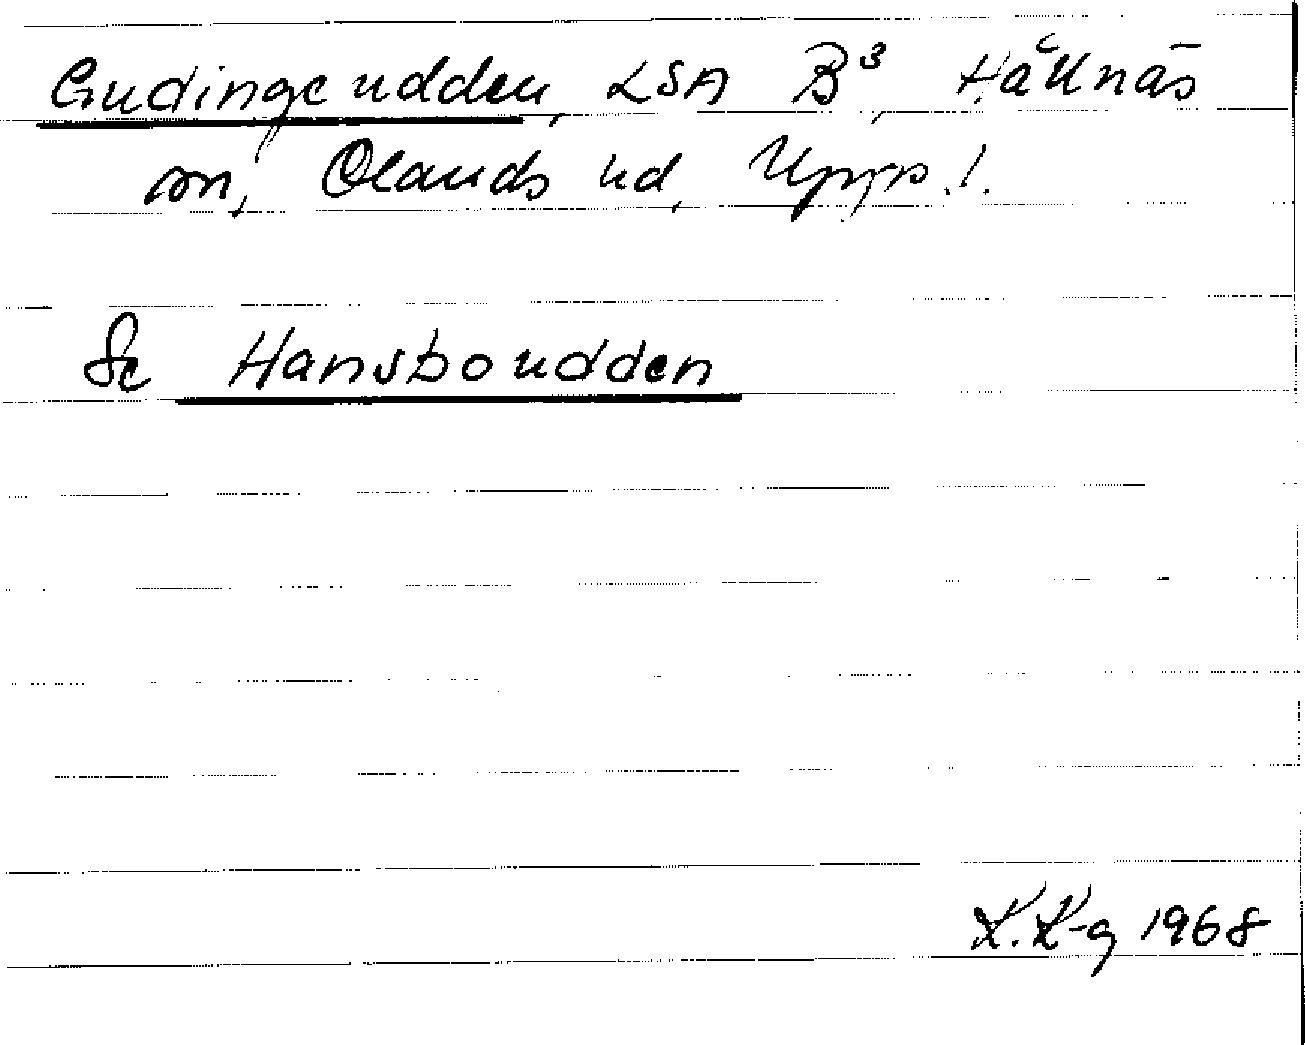 Gudinge udden, LSA B³, Hållnäs
sn, Olands hd, Upps. l.
Se Hansboudden
K. K-g 1968